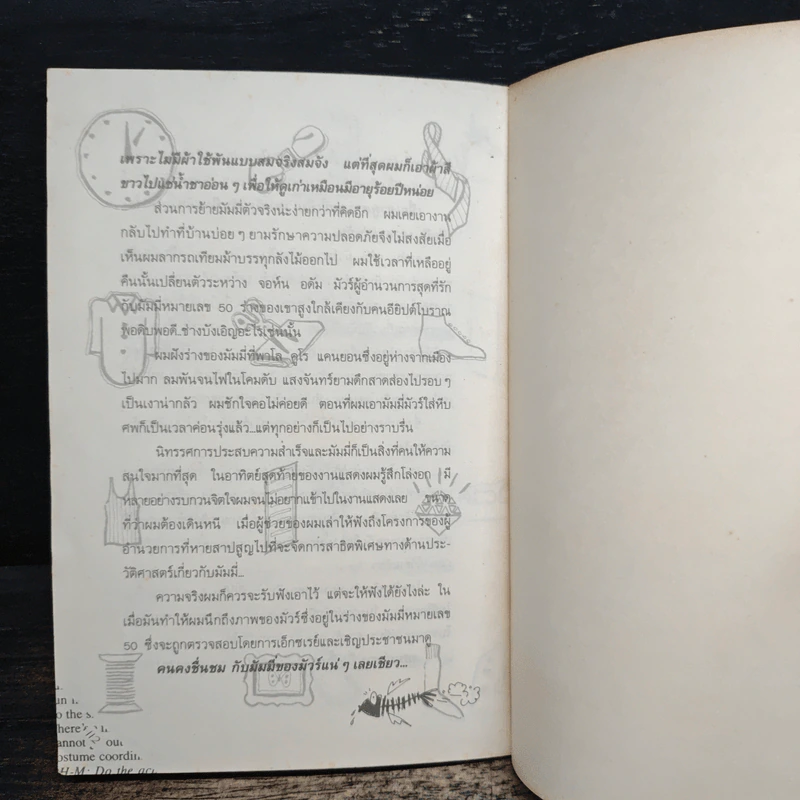 เพราะไม่มีผ้าใช้พันแบบสมจริงสมจัง แต่ที่สุดผมก็เอาผ้าสี
ขาวไปแช่น้ำชาอ่อน ๆ เพื่อให้ดูเก่าเหมือนมีอายุร้อยปีหน่อย
ส่วนการย้ายมัมมี่ตัวจริงน่ะง่ายกว่าที่คิดอีก ผมเคยเอางาน
กลับไปทำที่บ้านบ่อย ๆ ยามรักษาความปลอดภัยจึงไม่สงสัยเมื่อ
เห็นผมลากรถเทียมม้าบรรทุกลังไม้ออกไป ผมใช้เวลาที่เหลืออยู่
คืนนั้นเปลี่ยนตัวระหว่าง จอห์น อดัม มัวร์ผู้อำนวยการสุดที่รัก
กับมัมมี่หมายเลข 50 ร่างของเขาสูงใกล้เคียงกับคนอียิปต์โบราณ
พอดิบพอดี..ช่างบังเอิญอะไรเช่นนั้น
ผมฝังร่างของมัมมี่ที่พาโล ดูโร แคนยอนซึ่งอยู่ห่างจากเมือง
ไปมาก ลมพัดจนไฟในโคมดับ แสงจันทร์ยามดึกสาดส่องไปรอบ ๆ
เป็นเงาน่ากลัว ผมชักใจคอไม่ค่อยดี ตอนที่ผมเอามัมมี่มัวร์ใส่หีบ
ศพก็เป็นเวลาค่อนรุ่งแล้ว...แต่ทุกอย่างก็เป็นไปอย่างราบรื่น
นิทรรศการประสบความสำเร็จและมัมมี่ก็เป็นสิ่งที่คนให้ความ
สนใจมากที่สุด ในอาทิตย์สุดท้ายของงานแสดงผมรู้สึกโล่งอก มี
หลายอย่างรบกวนจิตใจผมจนไม่อยากเข้าไปในงานแสดงเลย ขนาด
ที่ว่าผมต้องเดินหนี เมื่อผู้ช่วยของผมเล่าให้ฟังถึงโครงการของผู้
อำนวยการที่หายสาปสูญไปที่จะจัดการสาธิตพิเศษทางด้านประ-
วัติศาสตร์เกี่ยวกับมัมมี่...
ความจริงผมก็ควรจะรับฟังเอาไว้ แต่จะให้ฟังได้ยังไงล่ะ ใน
เมื่อมันทำให้ผมนึกถึงภาพของมัวร์ซึ่งอยู่ในร่างของมัมมี่หมายเลข
50 ซึ่งจะถูกตรวจสอบโดยการเอ็กซเรย์และเชิญประชาชนมาดู
คนคงชื่นชม กับมัมมี่ของมัวร์แน่ ๆ เลยเชียว...
to the
out
ostume coordin
H-M: Do the